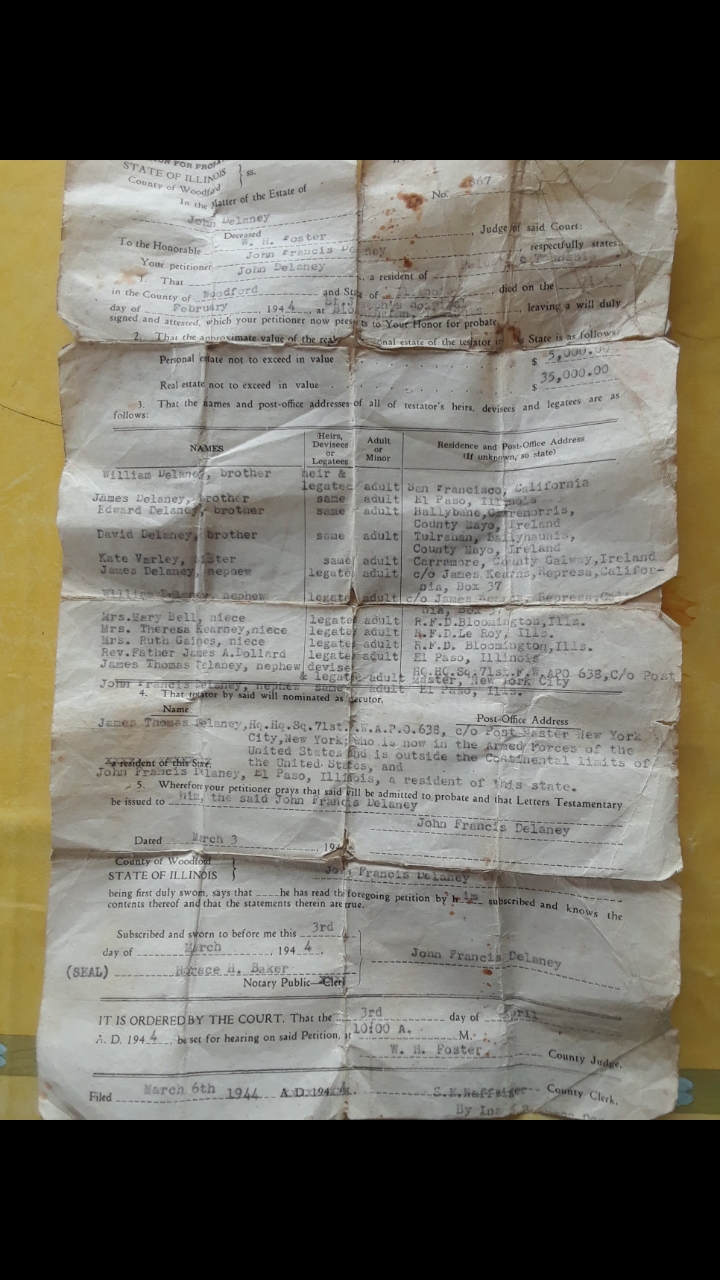 STATE OF ILLINOIS } ss.
County of Woodford
In the Matter of the Estate of
No.
John Delaney
Deceased
To the Honorable W. H. Foster, Judge of said Court:
Your petitioner John Francis respectfully states
1. That John Delaney, a resident of
in the County of Woodford and State of died on the
day of February, 1944, at Hospital, leaving a will duly
signed and attested, which your petitioner now presents to Your Honor for probate
2. That the approximate value of the real personal estate of the testator in State is as follows
Personal estate not to exceed in value $ 5,000.00
Real estate not to exceed in value $ 35,000.00
3. That the names and post-office addresses of all of testator's heirs, devisees and legatees are as
follows:
NAMES Heirs, Devisees or Legatees Adult or Minor Residence and Post-Office Address (If unknown, so state)
William Delaney, brother heir &
legatee adult San Francisco, California
James Delaney, brother same adult El Paso, Illinois
Edward Delaney, brother same adult Ballybane,
County Mayo, Ireland
David Delaney, brother same adult Tulrahan, Ballyhaunis,
County Mayo, Ireland
Kate Varley, sister same adult County Galway,Ireland
James Delaney, nephew legatee adult c/o James Kearns,Represa,Califor-
nia, Box 37
William Delaney, nephew legatee adult c/o James Represa,
Mrs.Mary Bell, niece legatee adult R.F.D.Bloomington,Ills.
Mrs. Theresa Kearney,niece legatee adult R.F.D.Le Roy, Ills.
Mrs. Ruth Gaines, niece legatee adult R.F.D. Bloomington,Ills.
Rev.Father James A.Pollard legatee adult El Paso, Illinois
James Thomas Delaney, nephew devisee Hq.Hq.Sq.71st.F.W.APO 638,C/o Post
& legatee adult Master, New York City
John Francis Delaney, nephew same adult El Paso, Ills.
4. That testator by said will nominated as executor,
Name Post-Office Address
James Thomas Delaney,Hq.Hq.Sq.71st.F.W.A.P.O.638, c/o Post Master New York
City,New York; who is now in the Armed Forces of the
United States and is outside the Continental limits of
a resident of this State. the United States, and
John Francis Delaney, El Paso, Illinois, a resident of this state.
5. Wherefore your petitioner prays that said will be admitted to probate and that Letters Testamentary
be issued to him, the said John Francis Delaney
John Francis Delaney
Dated March 3 194
County of Woodford }
STATE OF ILLINOIS John Francis Delaney
being first duly sworn, says that he has read the foregoing petition by his subscribed and knows the
contents thereof and that the statements therein are true.
Subscribed and sworn to before me this 3rd
day of March, 1944. John Francis Delaney
(SEAL) Horace H. Baker
Notary Public—Clerk
IT IS ORDERED BY THE COURT, That the 3rd day of April
A. D. 1944, be set for hearing on said Petition, at 10:00 A. M.
W. H. Foster County Judge.
Filed March 6th 1944 A.D. 194 County Clerk.
By